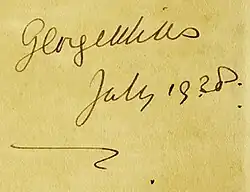 George Mills
July 1938.